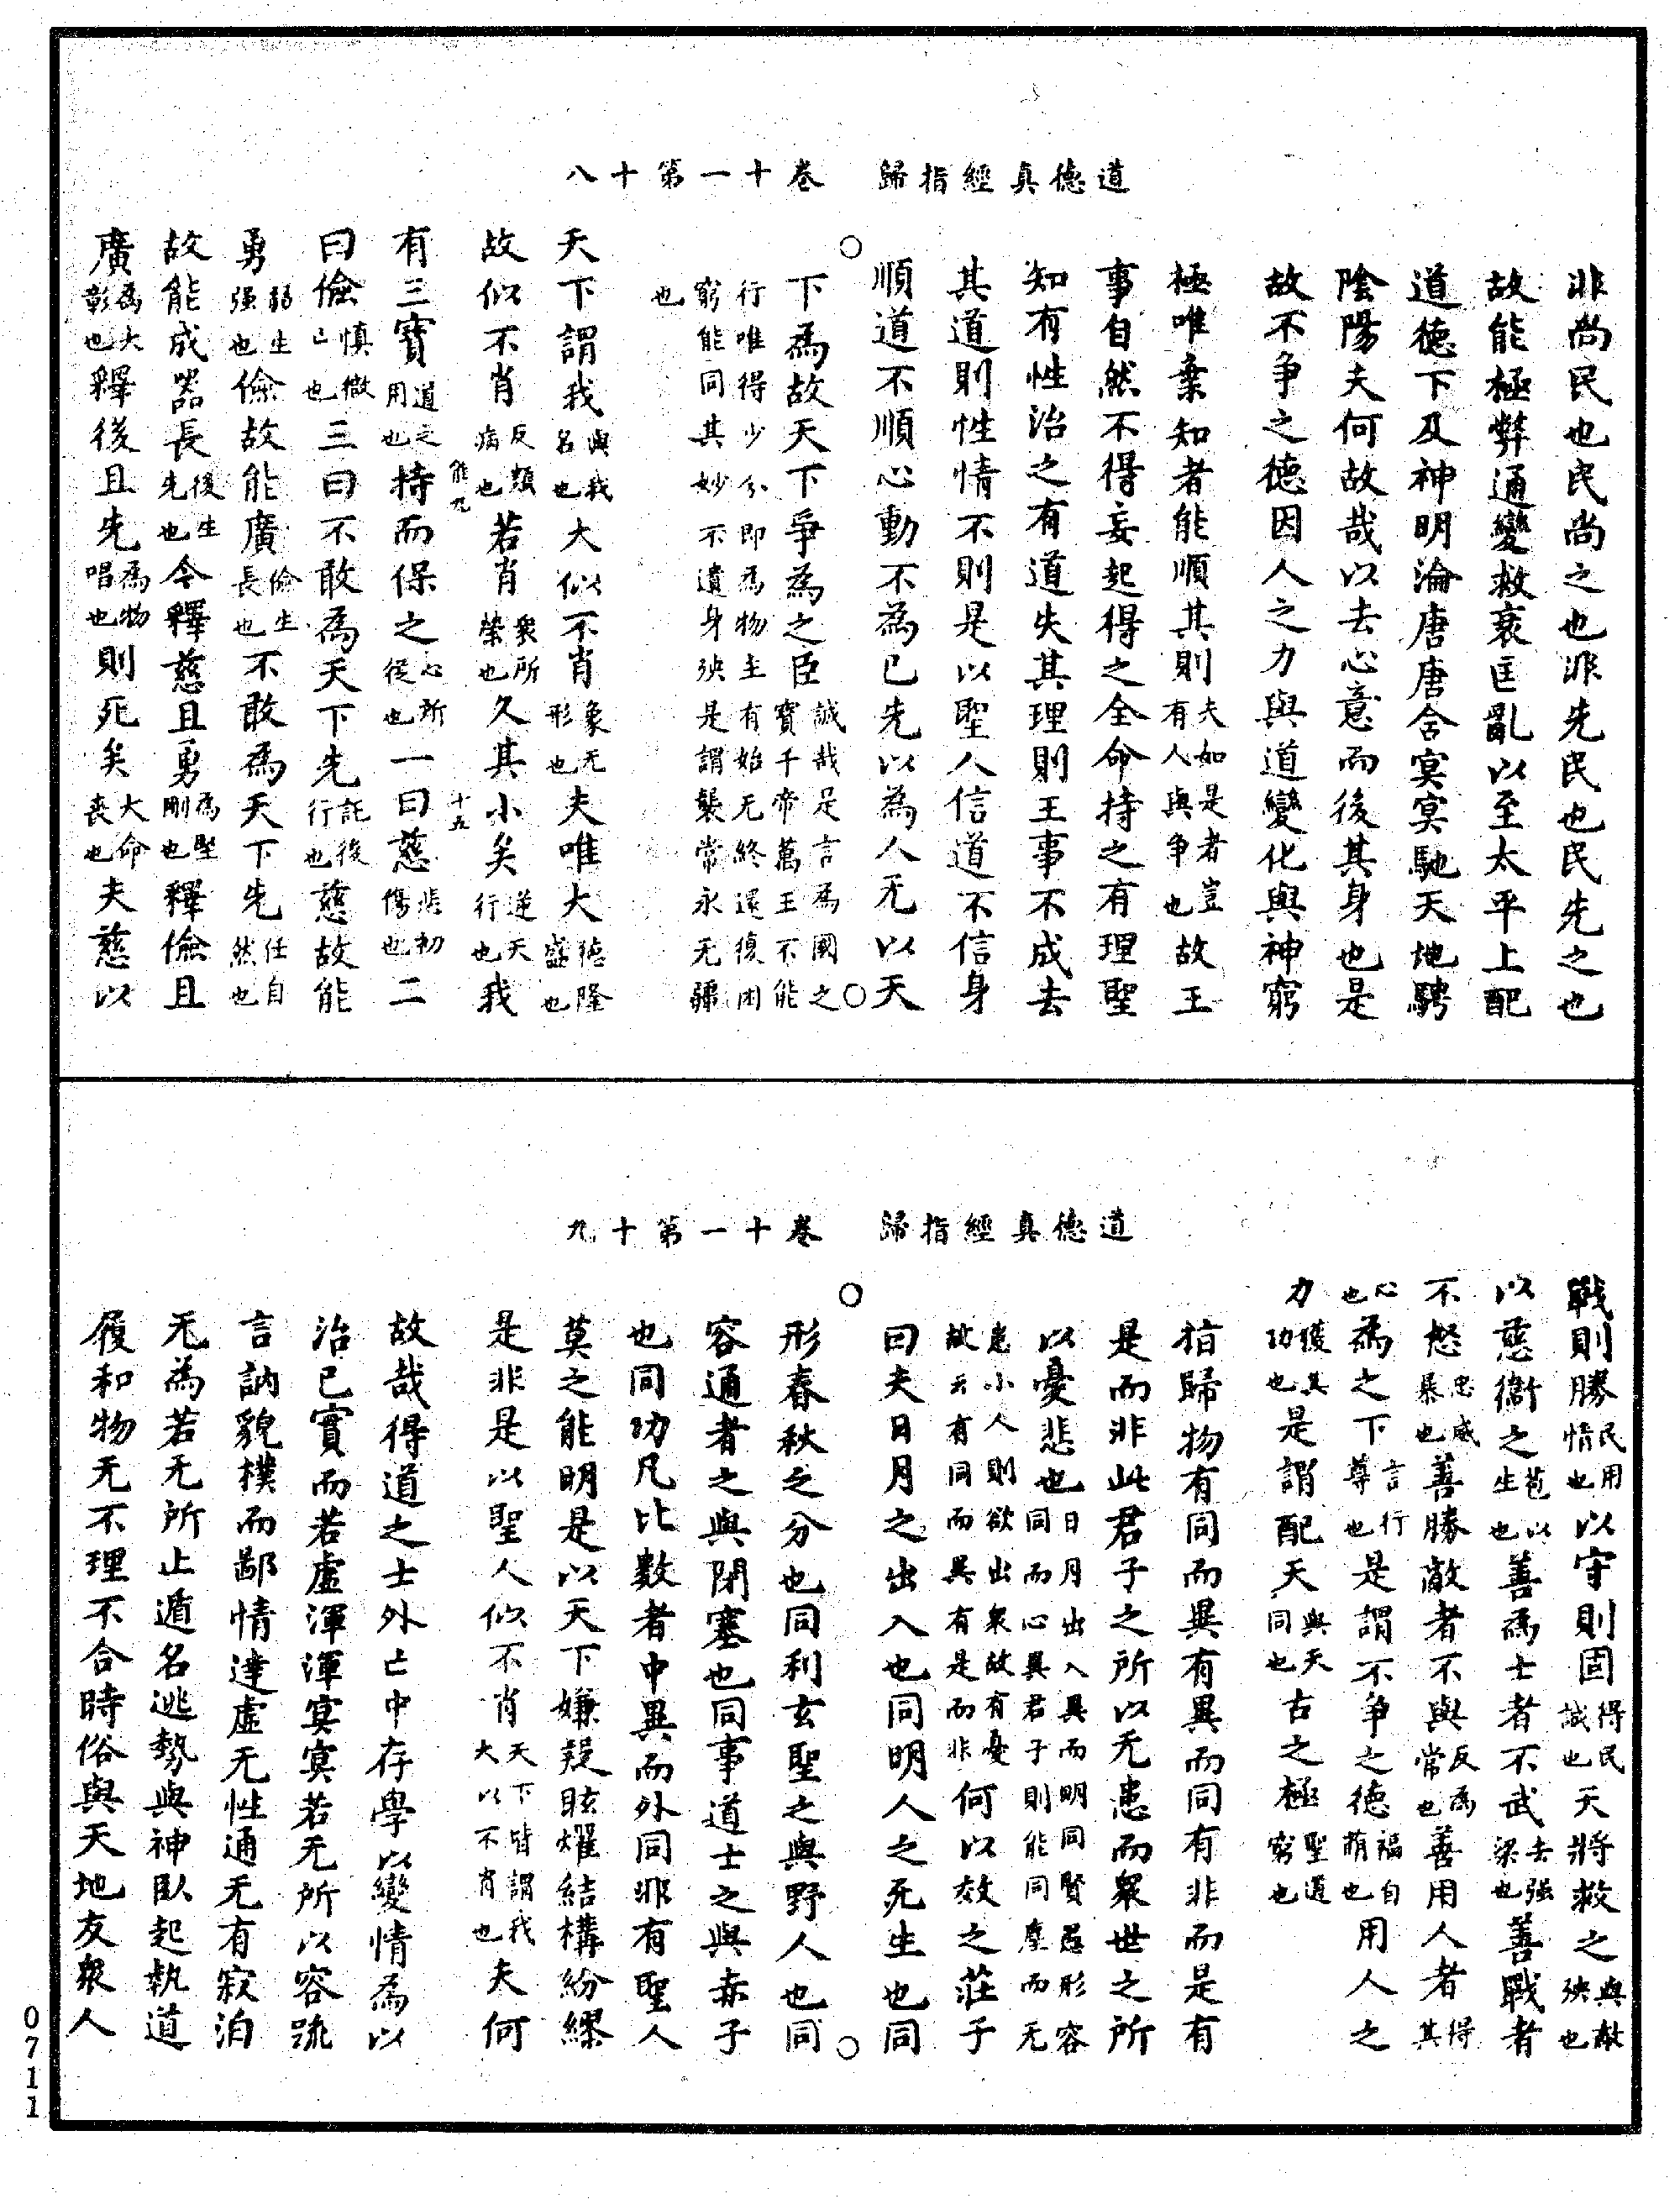 道德真經指歸 卷十一第十八
非尚民也民尚之也非先民也民先之也
故能極弊通變救衰匡亂以至太平上配
道德下及神明淪唐唐舍冥冥馳天地騁
陰陽夫何故哉以去心意而後其身也是
故不争之德因人之力與道變化與神窮
極唯棄知者能順其則夫如是者豈有人與争也故王
事自然不得妄起得之全命持之有理聖
知有性治之有道失其理則王事不成去
其道則性情不則是以聖人信道不信身
順道不順心動不為己先以為人无以天
○下為故天下爭為之臣誠哉是言為國之寶千帝萬王不能○
行唯得少分即為物主有始无終還復困窮能同其妙不遺身殃是謂襲常永无疆
也
天下謂我與我名也大似不肖象无形也夫唯大德隆盛也
故似不肖反類病也若肖衆所榮也久其小矣逆天行也我
能九 十五
有三寶道之用也持而保之心所從也一曰慈悲初傷也二
曰儉慎微也三曰不敢為天下先託後行也慈故能
勇弱生强也儉故能廣儉生長也不敢為天下先任自然也
故能成器長後生先也今釋慈且勇為堅剛也釋儉且
廣為大彰也釋後且先為物唱也則死矣大命丧也夫慈以
道德真經指歸 卷十一第十九
戰則勝民用情也以守則固得民誠也天將救之與敵殃也
以慈衞之苞以生也善為士者不武去强梁也善戰者
不怒忠威暴也善勝敵者不與反為常也善用人者得其
心也為之下言行尊也是謂不争之德福自萌也用人之
力獲其功也是謂配天與天同也古之極聖道窮也
指歸物有同而異有異而同有非而是有
是而非此君子之所以无患而衆世之所
以憂悲也日月出入異而明同賢愚形容同而心異君子則能同塵而无
患小人則欲出衆故有憂故云有同而異有是而非何以效之莊子
曰夫日月之出入也同明人之死生也同
○形春秋之分也同利玄聖之與野人也同○
容通者之與閉塞也同事道士之與赤子
也同功凡比數者中異而外同非有聖人
莫之能明是以天下嫌疑眩燿結構紛繆
是非是以聖人似不肖天下皆謂我大以不肖也夫何
故哉得道之士外亡中存學以變情為以
治己實而若虛渾渾冥冥若无所以容疏
言訥貌樸而鄙情達虛无性通无有寂泊
无為若无所止遁名逃勢與神臥起執道
履和物无不理不合時俗與天地友衆人
0711